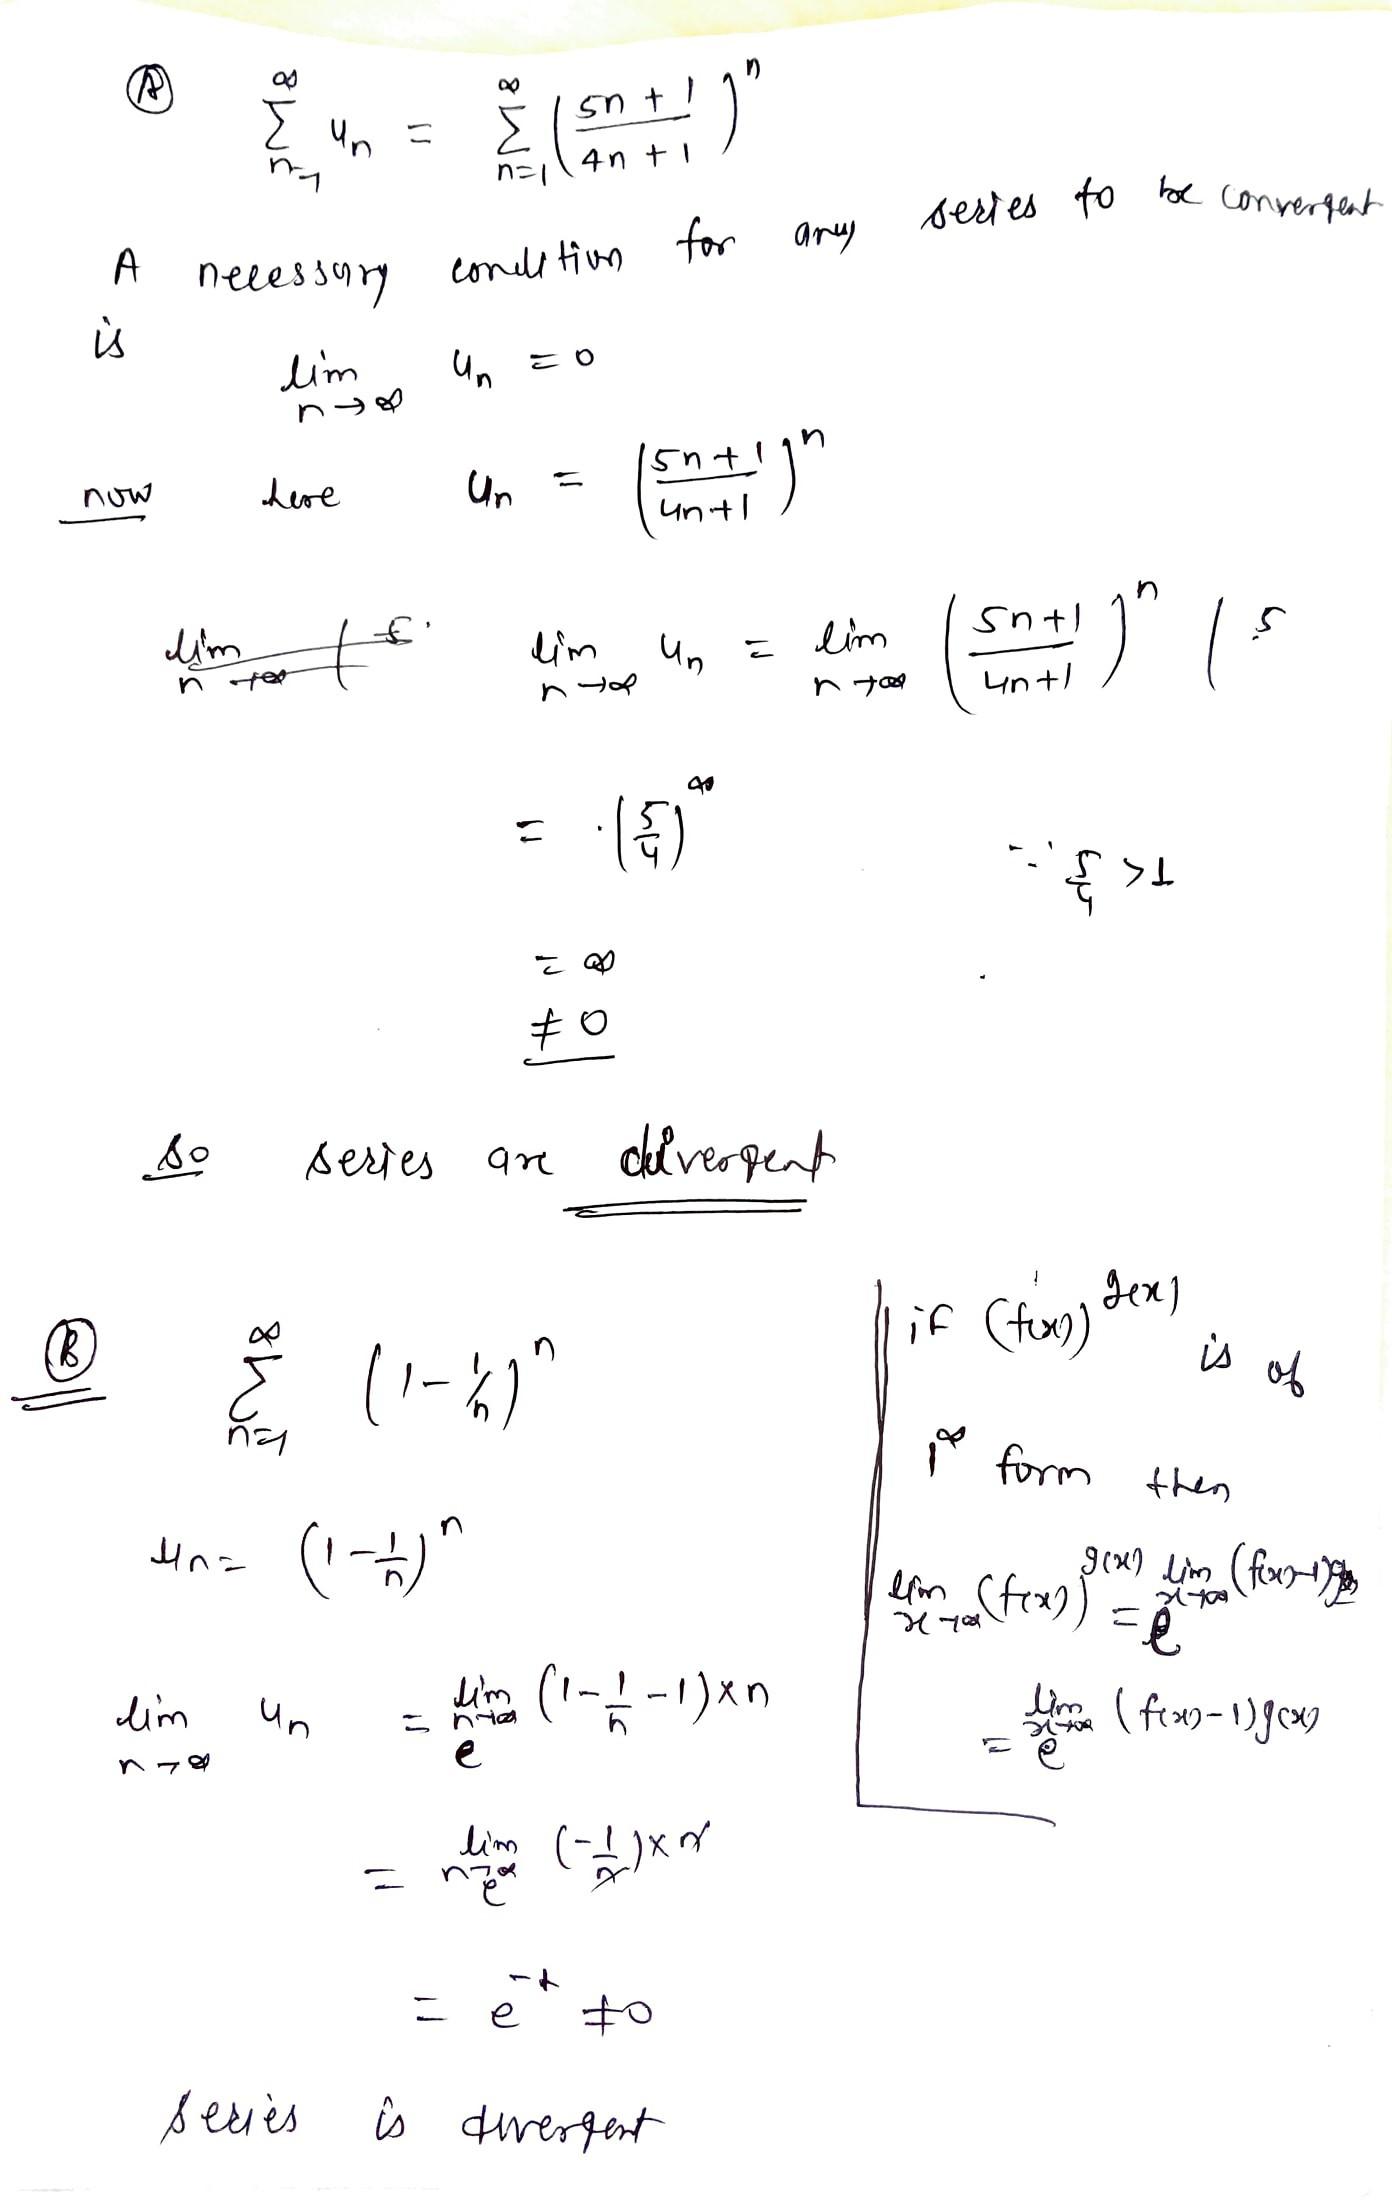 (A) ∞ ∑ n=1 un = ∞ ∑ n=1 ((5n+1)/(4n+1))^n
A necessary condition for any series to be convergent
is
lim n→∞ un = 0
now here un = ((5n+1)/(4n+1))^n
lim n→∞ un = lim n→∞ ((5n+1)/(4n+1))^n ( 5
= (5/4)^∞ ∵ 5/4 > 1
= ∞
≠ 0
so series are divergent
(B) ∞ ∑ n=1 (1-1/n)^n
un = (1-1/n)^n
lim n→∞ un = e^(lim n→∞ (1-1/n-1)×n)
= e^(lim n→∞ (-1/n)×n)
= e^-1 ≠ 0
series is divergent
if (f(x))^g(x) is of
1^∞ form then
lim x→∞ (f(x))^g(x) = e^(lim x→∞ (f(x)-1)g(x))
= e^(lim x→∞ (f(x)-1)g(x))